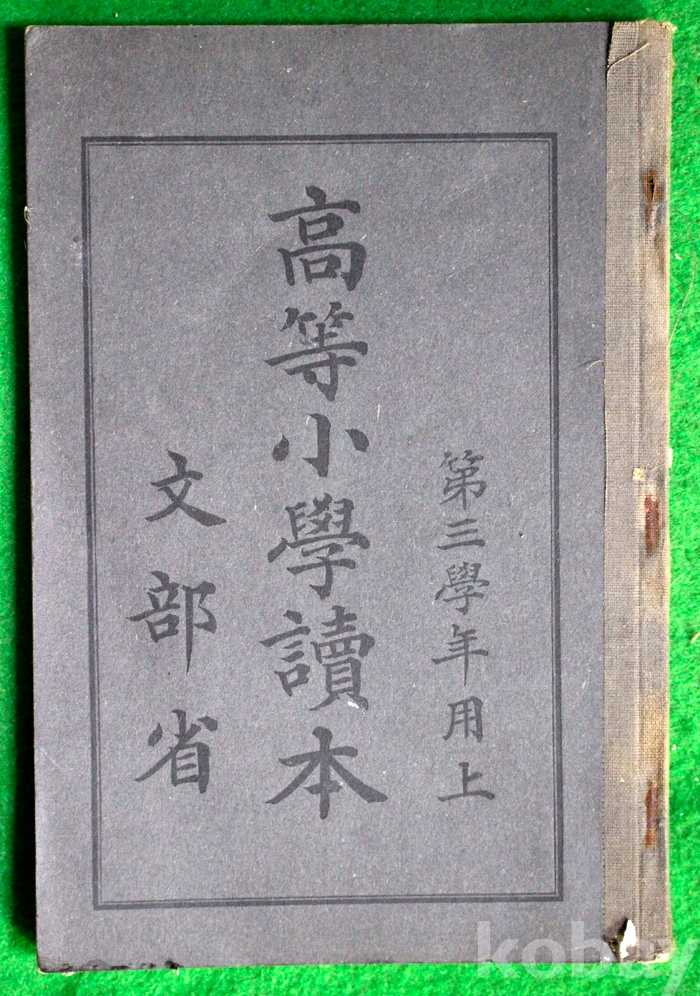 第三學年用上
高等小學讀本
文部省
kobay